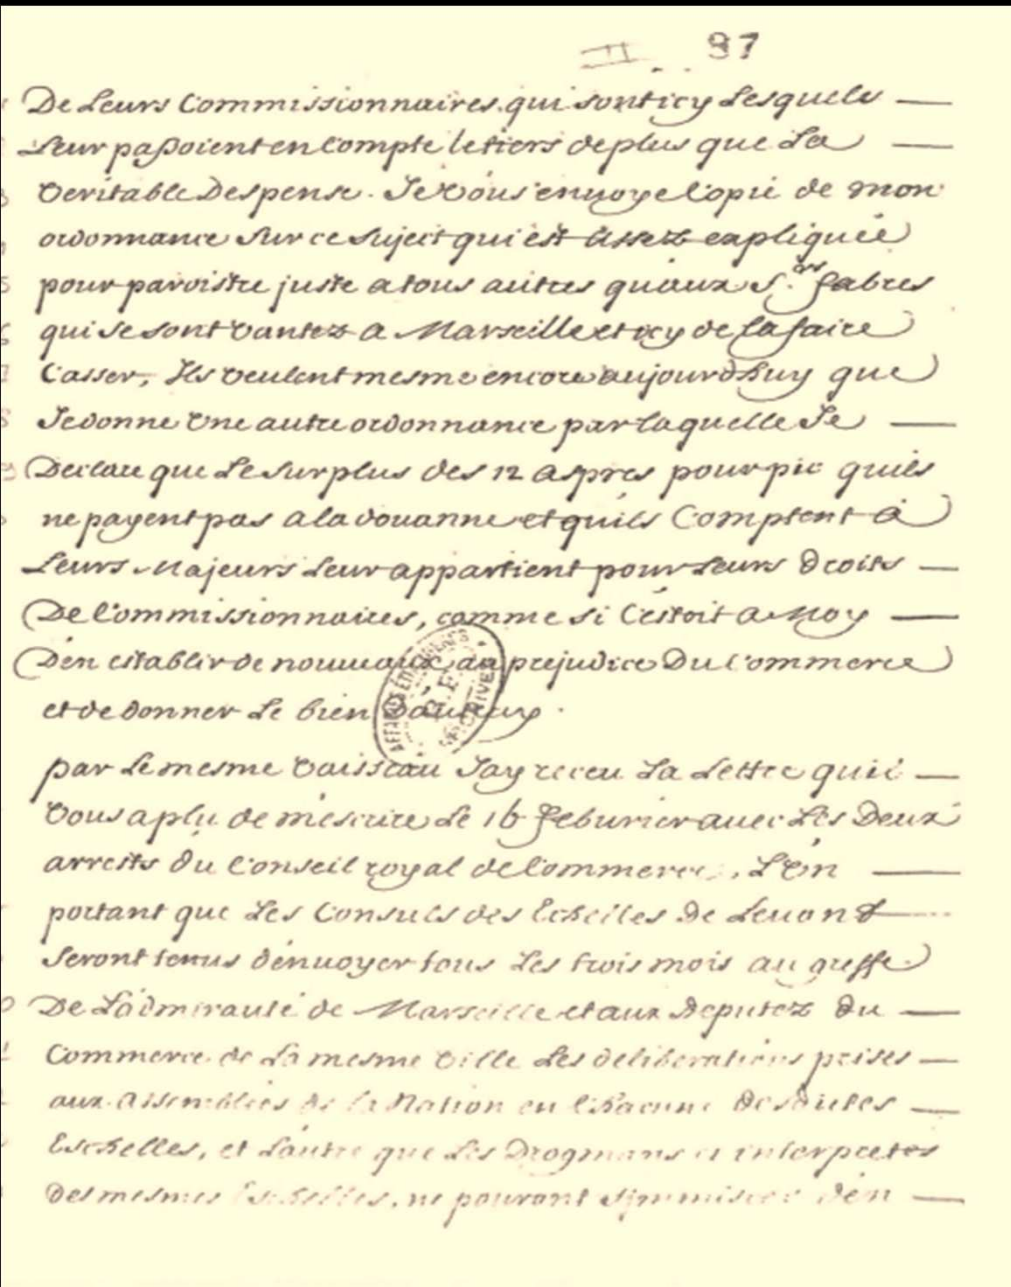 II.. 97
De Leurs Commissionnaires qui sont icy Lesquels
Leur passoient en Compte le tiers de plus que La
veritable Despense. Je vous envoye Copie de mon
ordonnance sur ce suject qui est assez expliquée
pour paroistre juste a tous autres quaux S.rs fabres
qui se sont vantez a Marseille et icy de la faire
Casser, Ils veulent mesme encore aujourdhuy que
Je donne une autre ordonnance par laquelle Je
Declare que Le surplus des 12 aspres pour pic quils
ne payent pas a la douanne et quils Comptent à
Leurs Majeurs Leur appartient pour Leurs droits
De Commissionnaires, comme si C'estoit a Moy
D'en establir de nouveaux au prejudice Du Commerce
et de donner Le bien dautruy.
par Le mesme vaisseau Jay receu La Lettre quil
vous a plu de m'escrire Le 16 feburier avec Les Deux
arrests du Conseil royal de Commerce, L'un
portant que Les Consuls des Echelles de Levant
seront tenus d'enuoyer tous Les trois mois au greffe
De L'admirauté de Marseille et aux Deputez du
Commerce de La mesme ville Les deliberations prises
aux assemblées de la Nation en Chacune Desdictes
Eschelles, et L'autre que Les Drogmans et interpretes
des mesmes Eschelles, ne pouront s'immiscer d'en
AFFAIRES ÉTRANGÈRES
R.F.
ARCHIVES